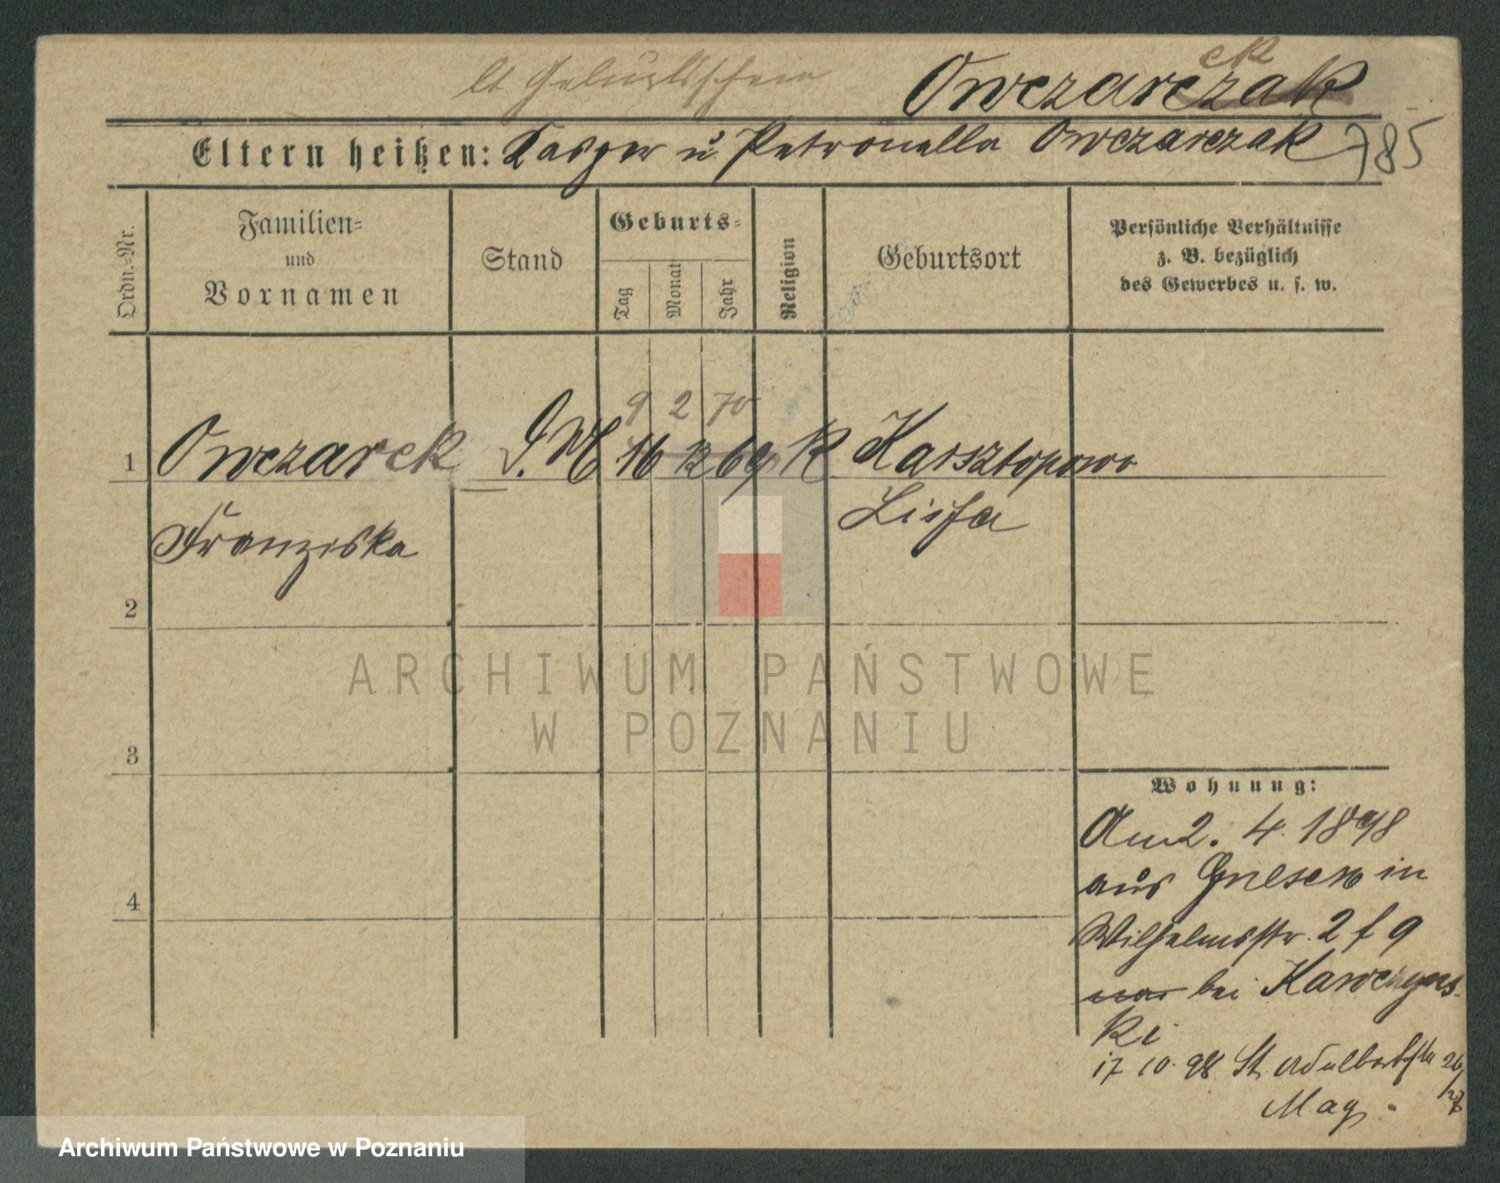 lt Geburtsschein Owczarczak
ek
Eltern heißen: Kasper u Petronella Owczarczak 785
Ordn.-Nr.
Familien-
und
Vornamen
Stand
Geburts-
Tag
Monat
Jahr
Religion
Geburtsort
Persönliche Verhältnisse
z. B. bezüglich
des Gewerbes u. s. w.
9 2 70
1 Owczarek D.M 16 12 69 K Karsztopowo
Franziska Lissa
2
ARCHIWUM PAŃSTWOWE
W POZNANIU
3
Wohnung:
Am 2. 4. 1898
aus Gnesen in
4
Wilhelmsstr. 2 f 9
bei Kawczyns-
ki
17 10. 98 St. Adalbertstr 26/27
Mag.
Archiwum Państwowe w Poznaniu